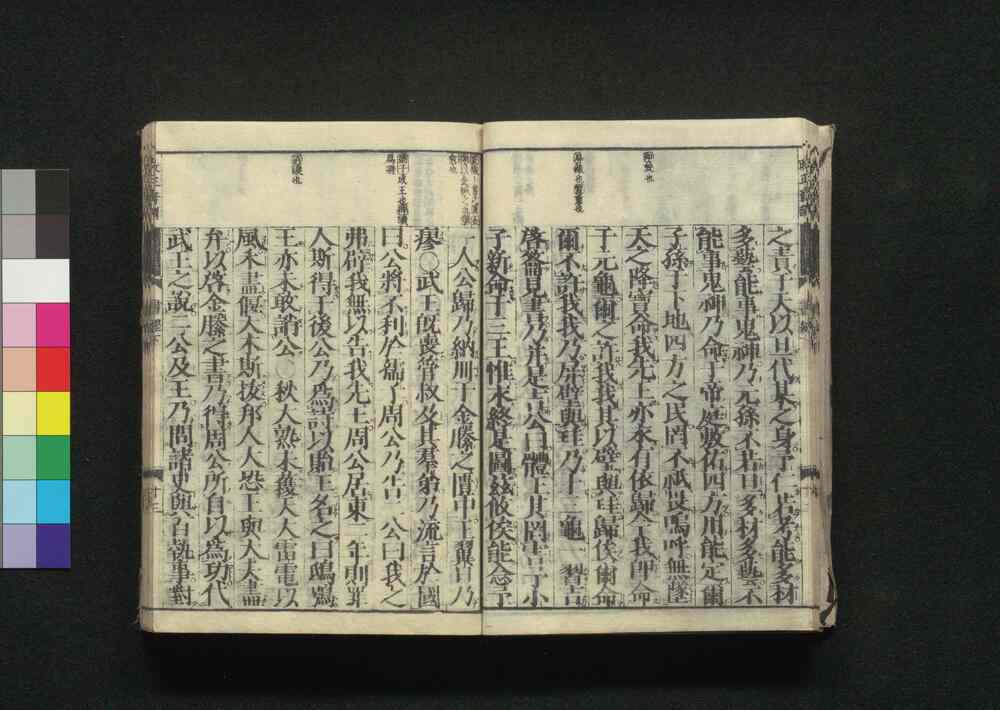 之責于天以旦代某之身予仁若考能多材
多藝能事鬼神乃元孫不若旦多材多藝不
能事鬼神乃命于帝庭敷佑四方用能定爾
子孫于下地四方之民罔不祗畏嗚呼無墜
天之降寶命我先王亦永有依歸今我即命
于元龜爾之許我我其以璧與珪歸俟爾命
爾不許我我乃屏璧與珪乃卜三龜一習吉
啓籥見書乃并是吉公曰體王其罔害予小
子新命于三王惟永終是圖茲攸俟能念予
一人公歸乃納冊于金縢之匱中王翼日乃
瘳○武王既喪管叔及其羣弟乃流言於國
曰公將不利於孺子周公乃告二公曰我之
弗辟我無以告我先王周公居東二年則罪
人斯得于後公乃爲詩以貽王名之曰鴟鴞
王亦未敢誚公○秋大熟未穫天大雷電以
風禾盡偃大木斯拔邦人大恐王與大夫盡
弁以啓金縢之書乃得周公所自以爲功代
武王之說二公及王乃問諸史與百執事對